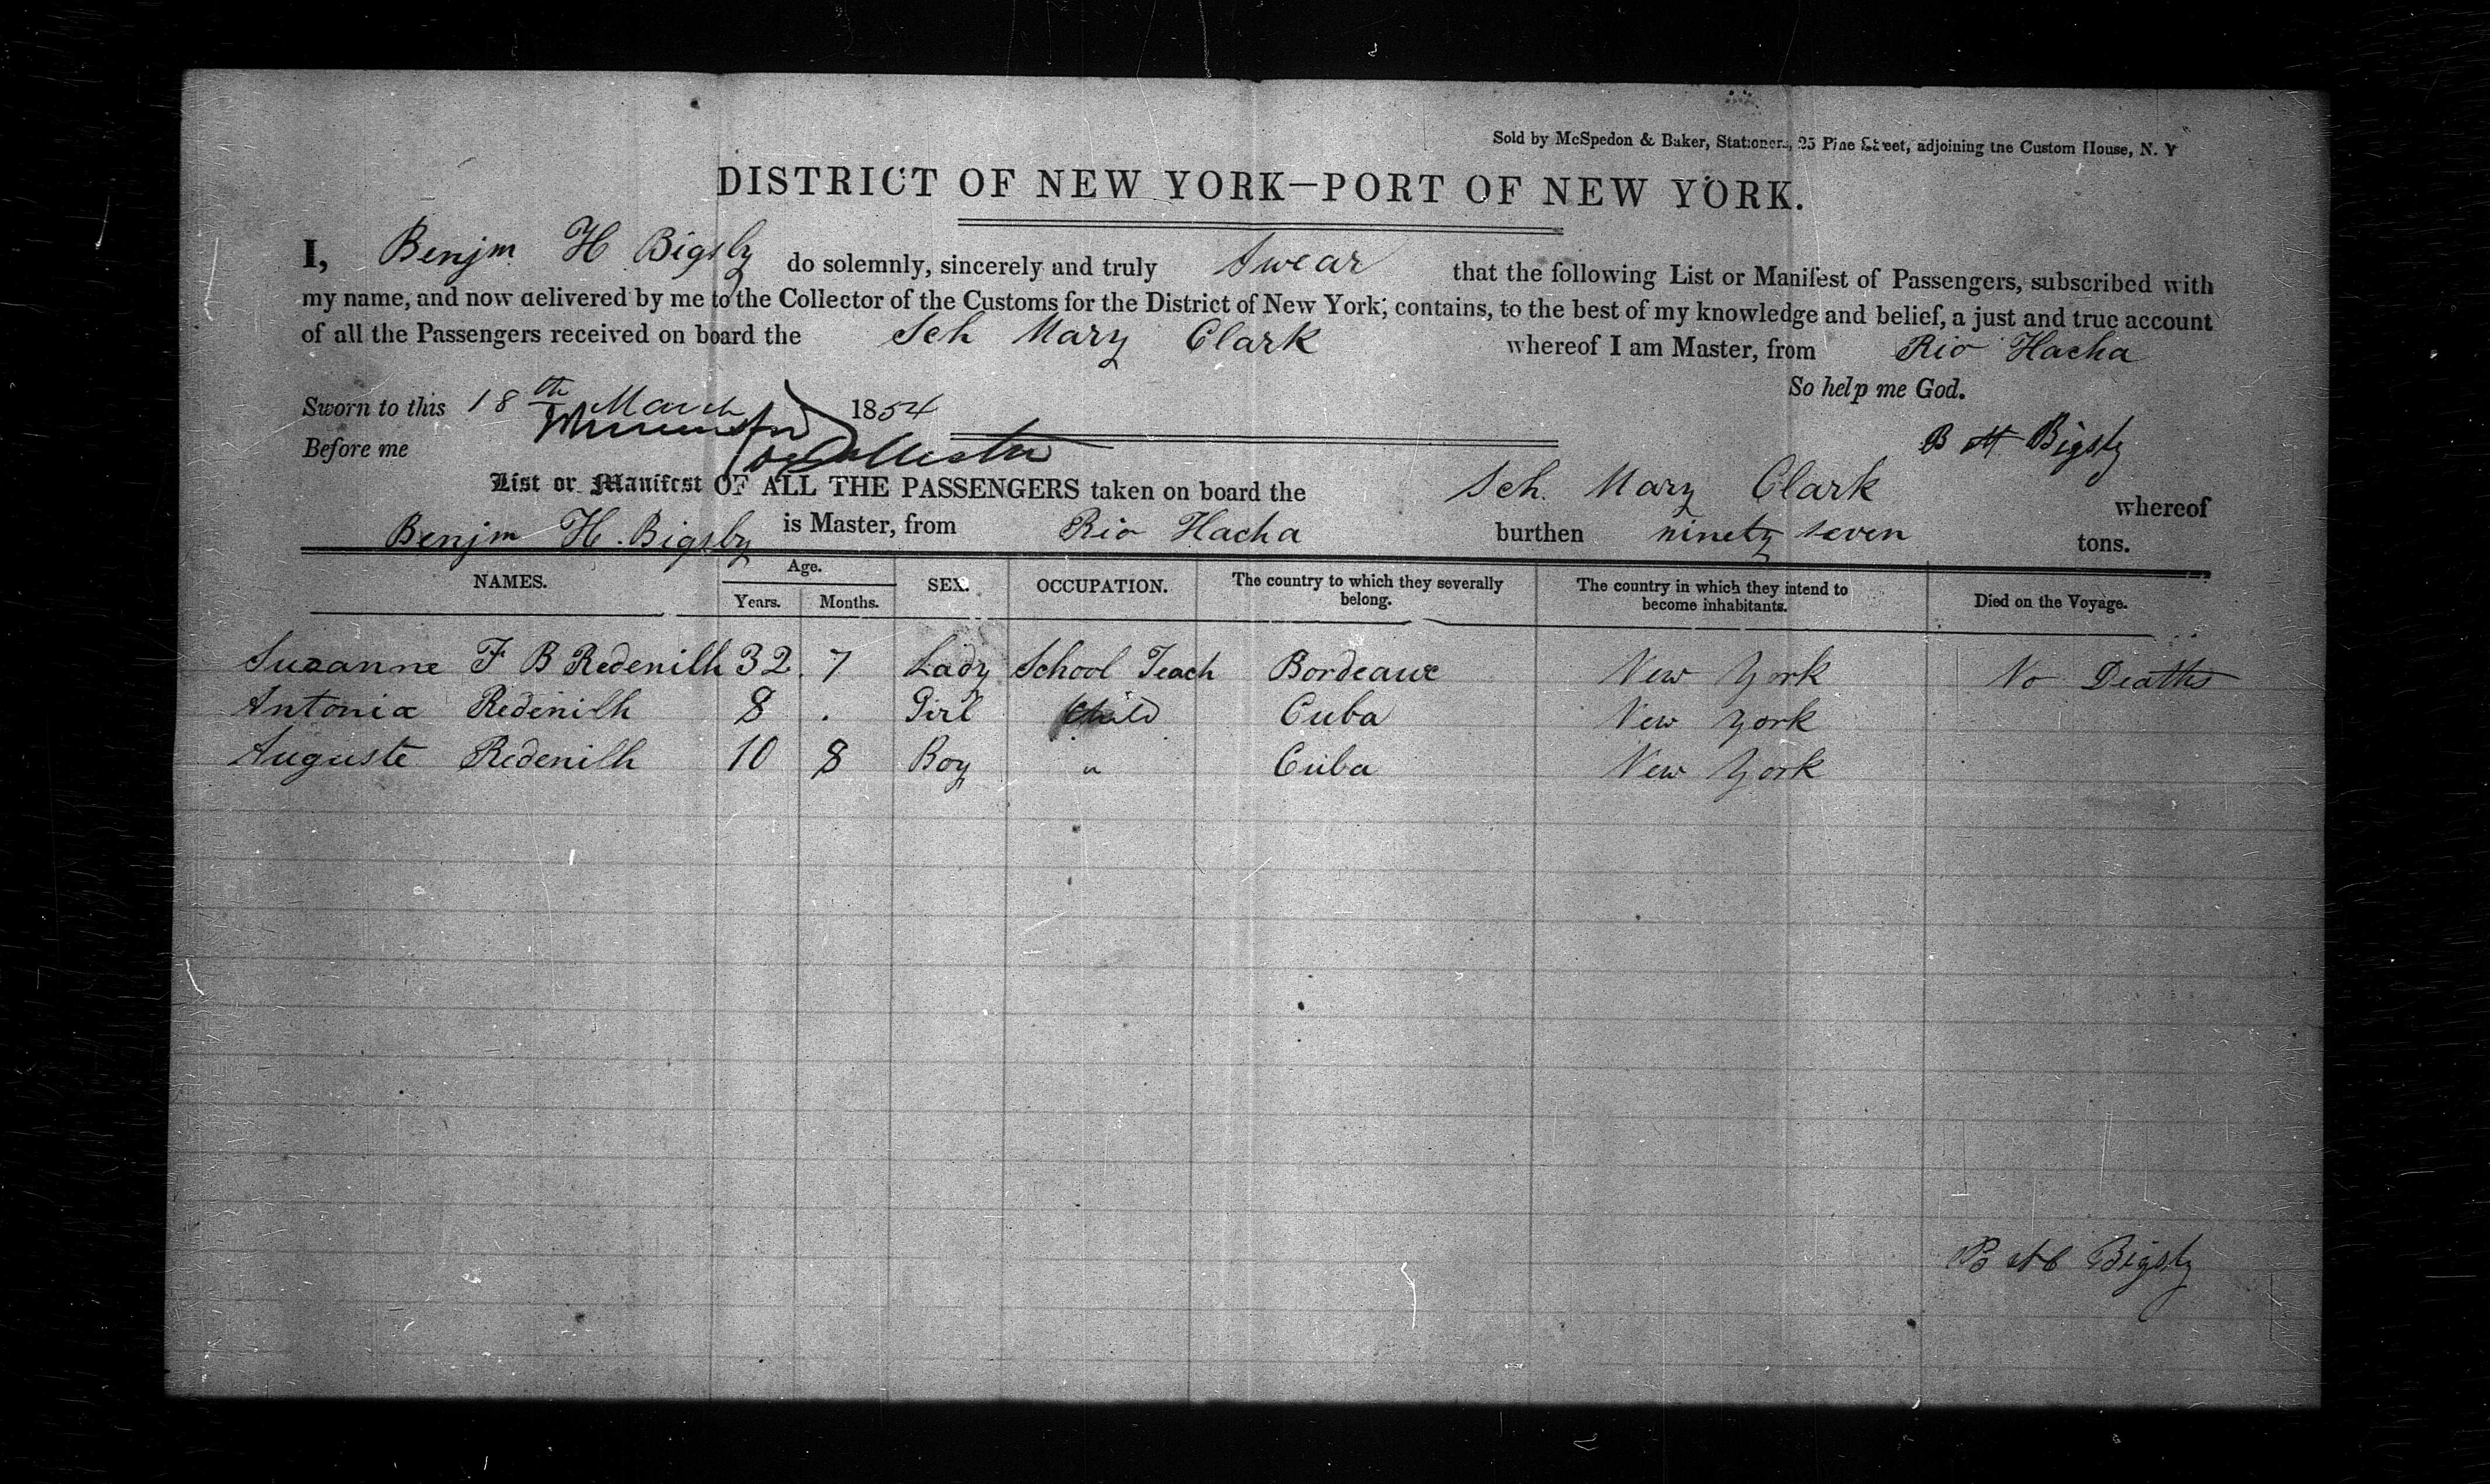 Sold by McSpedon & Baker, Stationers, 25 Pine Street, adjoining the Custom House, N. Y
DISTRICT OF NEW YORK—PORT OF NEW YORK.
I, Benjm H Bigsby do solemnly, sincerely and truly Swear that the following List or Manifest of Passengers, subscribed with
my name, and now delivered by me to the Collector of the Customs for the District of New York, contains, to the best of my knowledge and belief, a just and true account
of all the Passengers received on board the Sch Mary Clark whereof I am Master, from Rio Hacha
So help me God.
Sworn to this 18th March 1854
Before me
B H Bigsby
List or Manifest OF ALL THE PASSENGERS taken on board the Sch. Mary Clark whereof
Benjm H. Bigsby is Master, from Rio Hacha burthen ninety seven tons.
NAMES. Age. Years. Months. SEX. OCCUPATION. The country to which they severally belong. The country in which they intend to become inhabitants. Died on the Voyage.
Suzanne F B Redenilh 32 . 7 Lady School Teach Bordeaux New York No Deaths
Antonia Redenilh 8 . Girl Child Cuba New York
Auguste Redenilh 10 8 Boy " Cuba New York
B H Bigsby